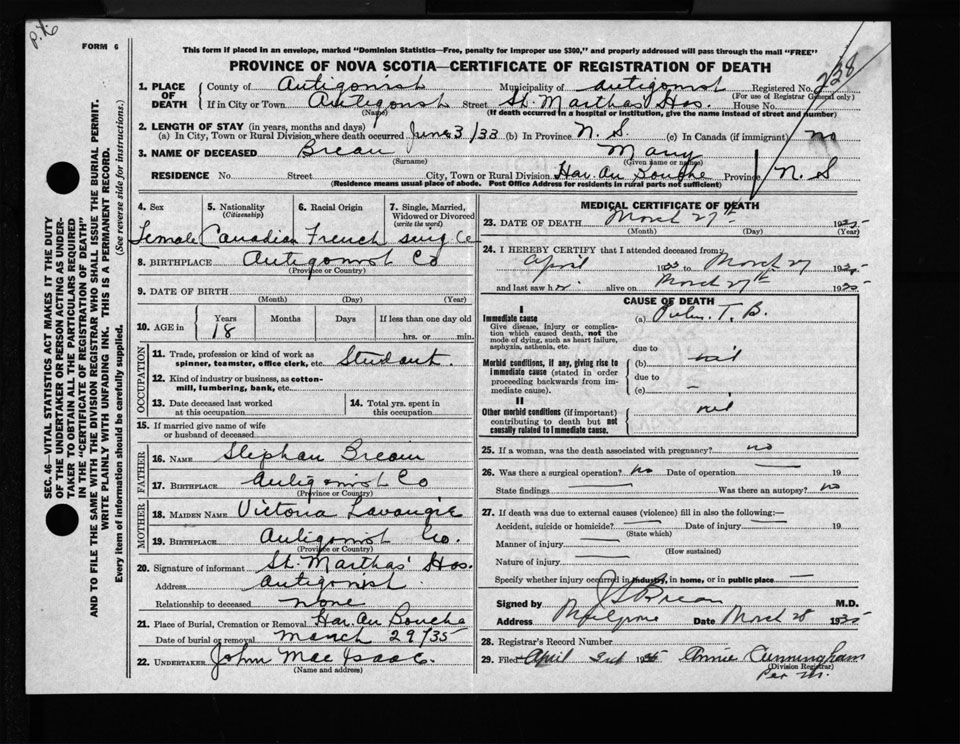 P.X.
FORM 6
This form if placed in an envelope, marked "Dominion Statistics—Free, penalty for improper use $300," and properly addressed will pass through the mail "FREE"
PROVINCE OF NOVA SCOTIA—CERTIFICATE OF REGISTRATION OF DEATH
238
1. PLACE OF DEATH County of Antigonish Municipality of Antigonish Registered No.
(For use of Registrar General only)
If in City or Town Antigonish Street St. Marthas Hos. House No.
(Name) (If death occurred in a hospital or institution, give the name instead of street and number)
2. LENGTH OF STAY (in years, months and days)
(a) In City, Town or Rural Division where death occurred June 3/33 (b) In Province N. S. (c) In Canada (if immigrant) no
3. NAME OF DECEASED Breau Mary
(Surname) (Given name or names)
RESIDENCE No. Street City, Town or Rural Division Har. Au Bouche Province N. S
(Residence means usual place of abode. Post Office Address for residents in rural parts not sufficient)
SEC. 46—VITAL STATISTICS ACT MAKES IT THE DUTY
OF THE UNDERTAKER OR PERSON ACTING AS UNDER-
TAKER TO OBTAIN ALL THE PARTICULARS REQUIRED
IN THE "CERTIFICATE OF REGISTRATION OF DEATH"
AND TO FILE THE SAME WITH THE DIVISION REGISTRAR WHO SHALL ISSUE THE BURIAL PERMIT.
WRITE PLAINLY WITH UNFADING INK. THIS IS A PERMANENT RECORD.
Every item of information should be carefully supplied. (See reverse side for instructions.)
4. Sex 5. Nationality (Citizenship) 6. Racial Origin 7. Single, Married, Widowed or Divorced (write the word)
Female Canadian French single
8. BIRTHPLACE Antigonish Co
(Province or Country)
9. DATE OF BIRTH
(Month) (Day) (Year)
10. AGE in Years Months Days If less than one day old
18 hrs. or min.
OCCUPATION
11. Trade, profession or kind of work as spinner, teamster, office clerk, etc. Student.
12. Kind of industry or business, as cotton-mill, lumbering, bank, etc.
13. Date deceased last worked at this occupation 14. Total yrs. spent in this occupation
15. If married give name of wife or husband of deceased
FATHER
16. NAME Stephan Breau
17. BIRTHPLACE Antigonish Co
(Province or Country)
MOTHER
18. MAIDEN NAME Victoria
19. BIRTHPLACE Antigonish Co.
(Province or Country)
20. Signature of informant St. Marthas' Hos.
Address Antigonish.
Relationship to deceased none
21. Place of Burial, Cremation or Removal Har. Au Bouche
Date of burial or removal March 29/35
22. UNDERTAKER John Mac Isaac.
(Name and address)
MEDICAL CERTIFICATE OF DEATH
23. DATE OF DEATH March 27th 1935
(Month) (Day) (Year)
24. I HEREBY CERTIFY that I attended deceased from
April 1933 to March 27 1935
and last saw her alive on March 27th 1935
CAUSE OF DEATH
I
Immediate cause
Give disease, injury or complication which caused death, not the mode of dying, such as heart failure, asphyxia, asthenia, etc.
(a) Pulm. T. B.
due to
Morbid conditions, if any, giving rise to immediate cause (stated in order proceeding backwards from immediate cause).
(b) nil
due to
(c) —
II
Other morbid conditions (if important) contributing to death but not causally related to immediate cause.
nil
25. If a woman, was the death associated with pregnancy? no
26. Was there a surgical operation? no Date of operation — 19
State findings — Was there an autopsy? no
27. If death was due to external causes (violence) fill in also the following:—
Accident, suicide or homicide? — Date of injury — 19
(State which)
Manner of injury —
(How sustained)
Nature of injury —
Specify whether injury occurred in industry, in home, or in public place —
Signed by M.D.
Address Date March 28 1935
28. Registrar's Record Number
29. Filed April 3rd 1935 Annie Cunningham
(Division Registrar)
Per M.